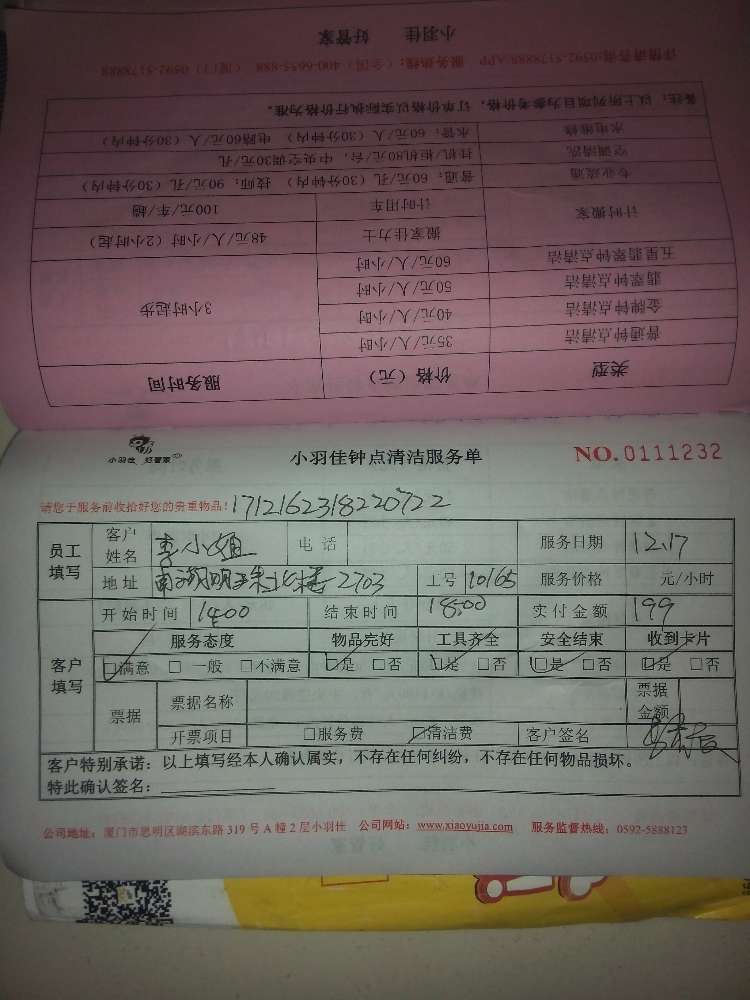 小羽佳 好管家
详情请咨询:0592-5178888/APP 服务热线:(全国)400-6655-888 (厦门)0592-5178888
备注:以上所列项目为参考价格,订单价格以实际执行价格为准。
水电维修 水管:60元/人(30分钟内) 电路60元/人(30分钟内)
空调清洗 挂机/柜机80元/台,中央空调30元/孔
专业疏通 普通:60元/孔(30分钟内) 技师:90元/孔(30分钟内)
计时搬家 计时用车 100元/车/趟
搬家佳力士 48元/人/小时(2小时起)
五星翡翠钟点清洁 60元/人/小时
翡翠钟点清洁 50元/人/小时
3小时起步
金牌钟点清洁 40元/人/小时
普通钟点清洁 35元/人/小时
类型 价格(元) 服务时间
小羽佳 好管家
小羽佳钟点清洁服务单
NO.0111232
请您于服务前收拾好您的贵重物品!1712162318220722
员工填写 客户姓名 李小姐 电话 服务日期 12.17
地址 2703 工号 10165 服务价格 元/小时
客户填写 开始时间 14:00 结束时间 18:00 实付金额 199
服务态度 物品完好 工具齐全 安全结束 收到卡片
☑满意 □一般 □不满意 ☑是 □否 ☑是 □否 ☑是 □否 ☑是 □否
票据 票据名称 票据金额
开票项目 □服务费 ☑清洁费 客户签名
客户特别承诺:以上填写经本人确认属实,不存在任何纠纷,不存在任何物品损坏。
特此确认签名:
公司地址:厦门市思明区湖滨东路319号A幢2层小羽佳 公司网站:www.xiaoyujia.com 服务监督热线:0592-5888123